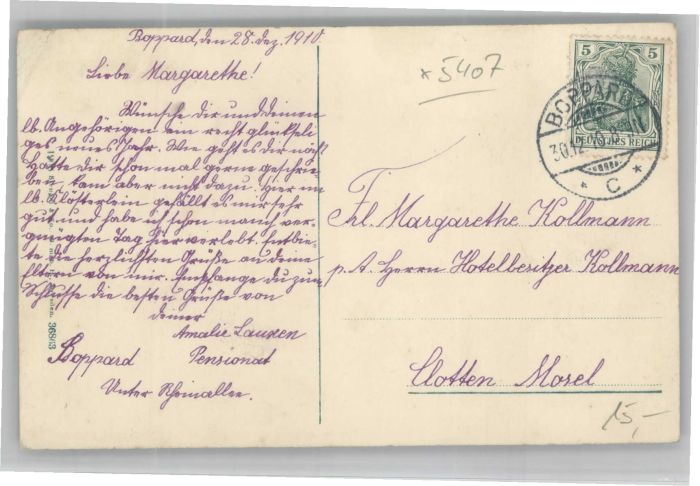 Boppard, den 28. Dez. 1910
Liebe Margarethe!
Wünsche dir und deinen
lb. Angehörigen ein recht glückseli-
ges neues Jahr. Wie geht es dir noch
Hatte dir schon mal gerne geschrie-
ben, kam aber nicht dazu. Hier im
lb. Klösterlein gefällt es mir sehr
gut und habe ich schon manch ver-
gnügten Tag hier verlebt. Entbie-
te die herzlichsten Grüße an deine
Eltern von mir. Empfange du zum
Schlusse die besten Grüße von
deiner
Amalie Lauxen
Boppard Pensionat
Unter Rheinallee.
*5407
5 5
DEUTSCHES REICH
BOPPARD
30.12.10.8
* C *
Frl. Margarethe Kollmann
p. A. Herrn Hotelbesitzer Kollmann
Clotten Mosel
36813
15,-